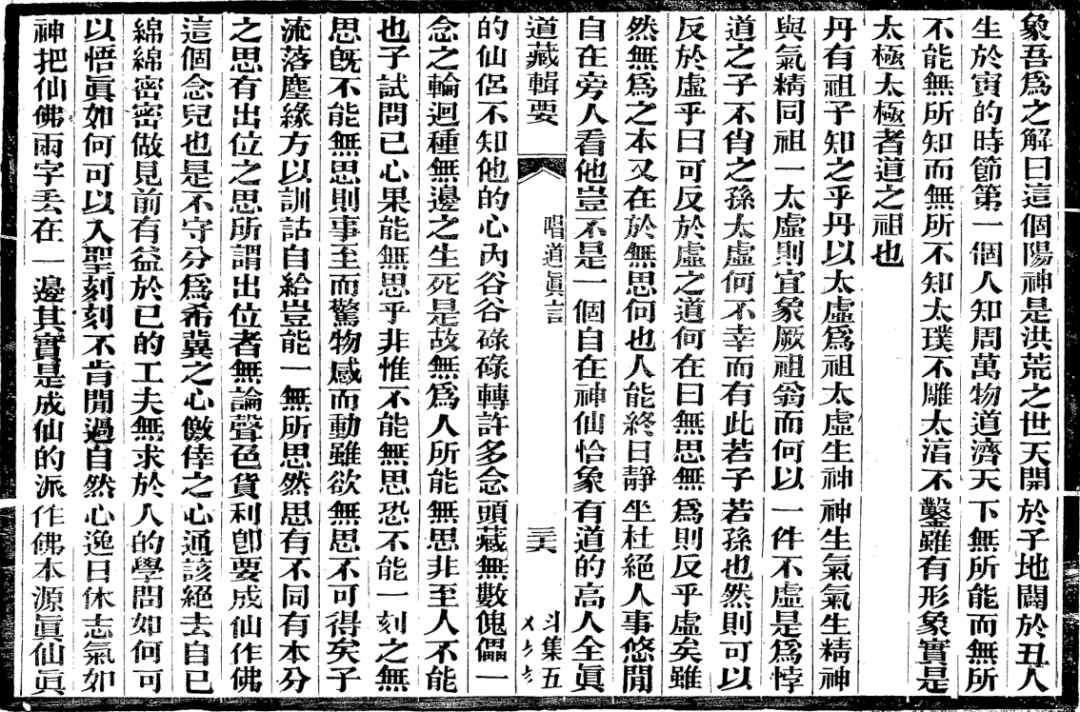 象吾爲之解曰這個陽神是洪荒之世天開於子地闢於丑人
生於寅的時節第一個人知周萬物道濟天下無所能而無所
不能無所知而無所不知太璞不雕太淯不鑿雖有形象實是
太極太極者道之祖也
丹有祖子知之乎丹以太虛爲祖太虛生神神生氣氣生精神
與氣精同祖一太虛則宜象厥祖翁而何以一件不虛是爲悖
道之子不肖之孫太虛何不幸而有此若子若孫也然則可以
反於虛乎曰可反於虛之道何在曰無思無爲則反乎虛矣雖
然無爲之本又在於無思何也人能終日靜坐杜絕人事悠閒
自在旁人看他豈不是一個自在神仙恰象有道的高人全眞
道藏輯要
唱道眞言
三六
斗集五
的仙侶不知他的心內谷谷碌碌轉許多念頭藏無數傀儡一
念之輪迴種無邊之生死是故無爲人所能無思非至人不能
也子試問已心果能無思乎非惟不能無思恐不能一刻之無
思旣不能無思則事至而驚物感而動雖欲無思不可得矣子
流落塵緣方以訓詁自給豈能一無所思然思有不同有本分
之思有出位之思所謂出位者無論聲色貨利卽要成仙作佛
這個念兒也是不守分爲希冀之心儌倖之心通該絕去自已
綿綿密密做見前有益於已的工夫無求於人的學問如何可
以悟眞如何可以入聖刻刻不肯閒過自然心逸日休志氣如
神把仙佛兩字丢在一邊其實是成仙的派作佛本源眞仙眞